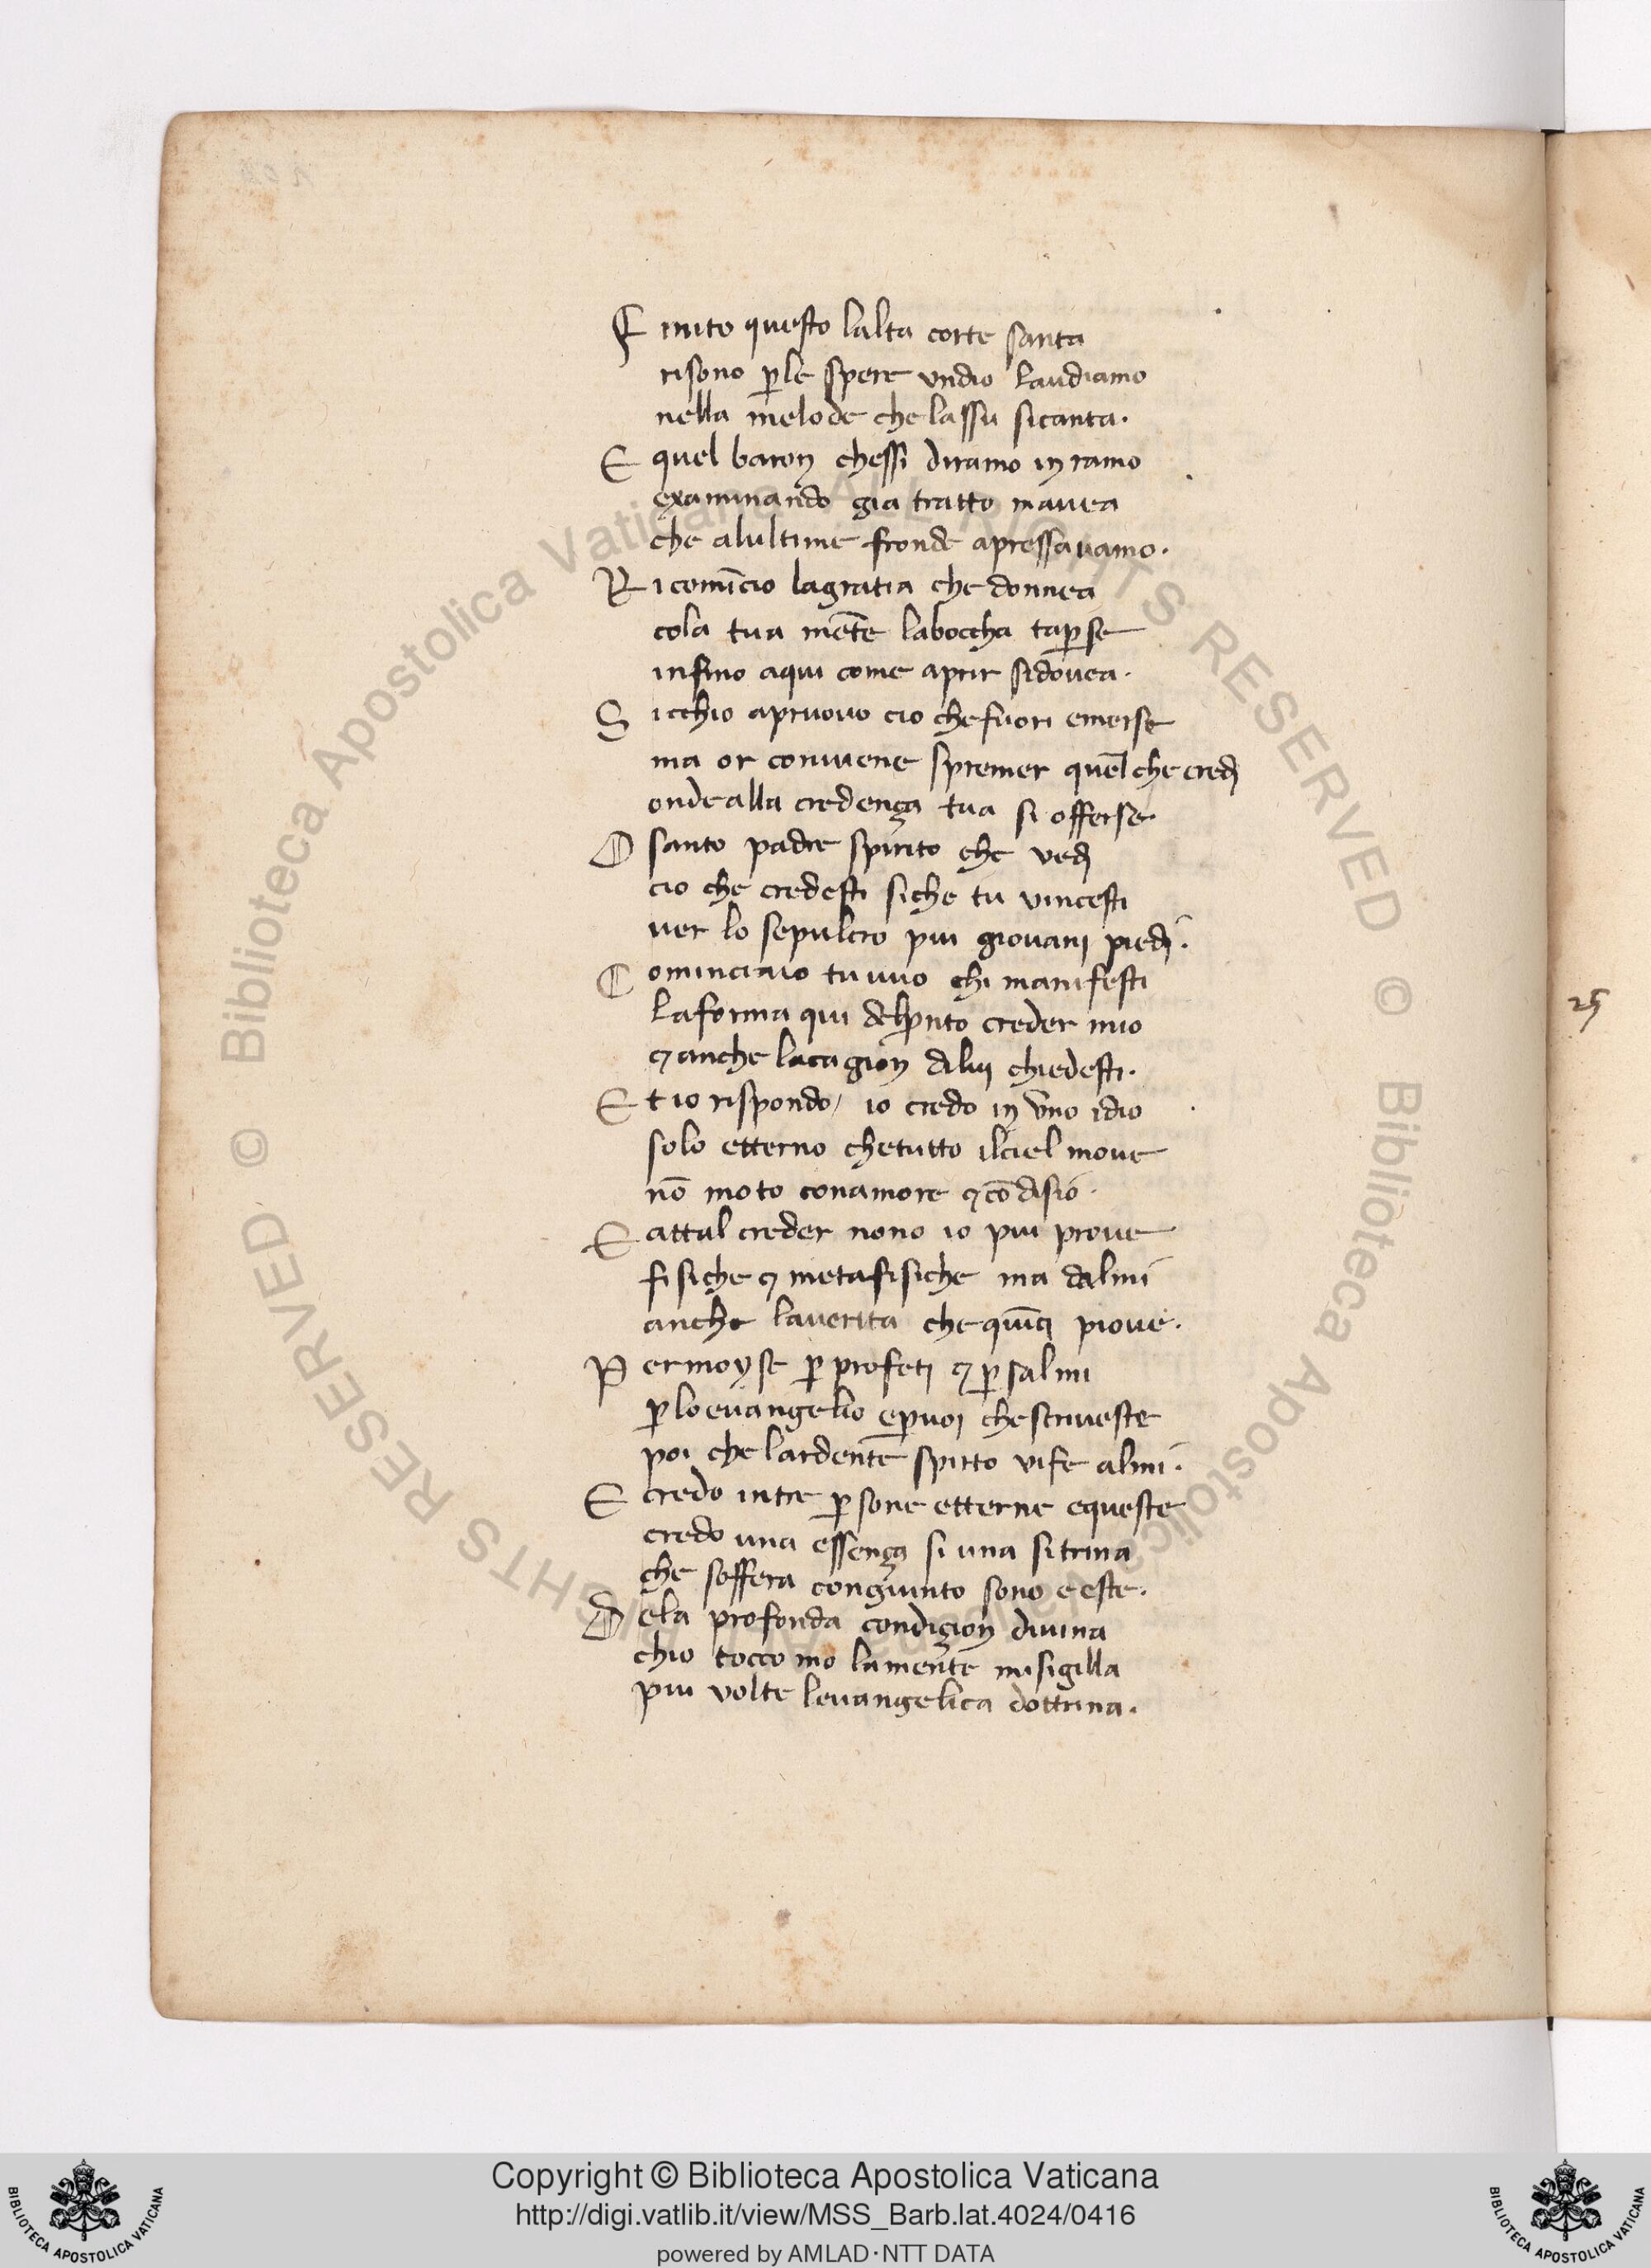 F inito questo lalta corte santa
risono ꝑ le spere undio laudiamo
nella melode che lassu sicanta.
E quel baron chessi diramo in ramo
examinando gia tratto mavea
che alultime fronde apressavamo.
R icomīcio lagratia che donnea
cola tua mēte laboccha taꝑse
infino aqui come aprir sidovea.
S icchio apruovo cio chefuori emerse
ma or conviene spremer quel che credj
onde alla credença tua si offerse.
O santo padre spirito che vedj
cio che credesti siche tu vincesti
ver lo sepulcro piu giovani piedj.
C ominciaio tu vuo chi manifesti
la forma qui del pnto creder mio
⁊ anche lacagion di luj chiedesti.
E t io rispondo / io credo in uno idio
solo etterno chetutto ilciel move
nō moto conamore ⁊ cō disio.
E attal creder nono io piu prove
fisiche ⁊ metafisiche ma dalmi
anche laverita che quīcj piove.
P ermoyse ꝑ profetj ⁊ ꝑ salmi
ꝑ loevangelio eꝑ voj che scriveste
poi che lardente spirto vife almi.
E credo intre ꝑsone etterne equeste
credo una essença si una sitrina
che soffera congiunto sono e este.
D ela profonda condiçion divina
chio tocco mo lamente misigilla
piu volte levangelica dottrina.
25
© Biblioteca Apostolica Vaticana ALL RIGHTS RESERVED © Biblioteca Apostolica Vaticana ALL RIGHTS RESERVED
Copyright © Biblioteca Apostolica Vaticana
http://digi.vatlib.it/view/MSS_Barb.lat.4024/0416
powered by AMLAD·NTT DATA
BIBLIOTECA APOSTOLICA VATICANA
BIBLIOTECA APOSTOLICA VATICANA